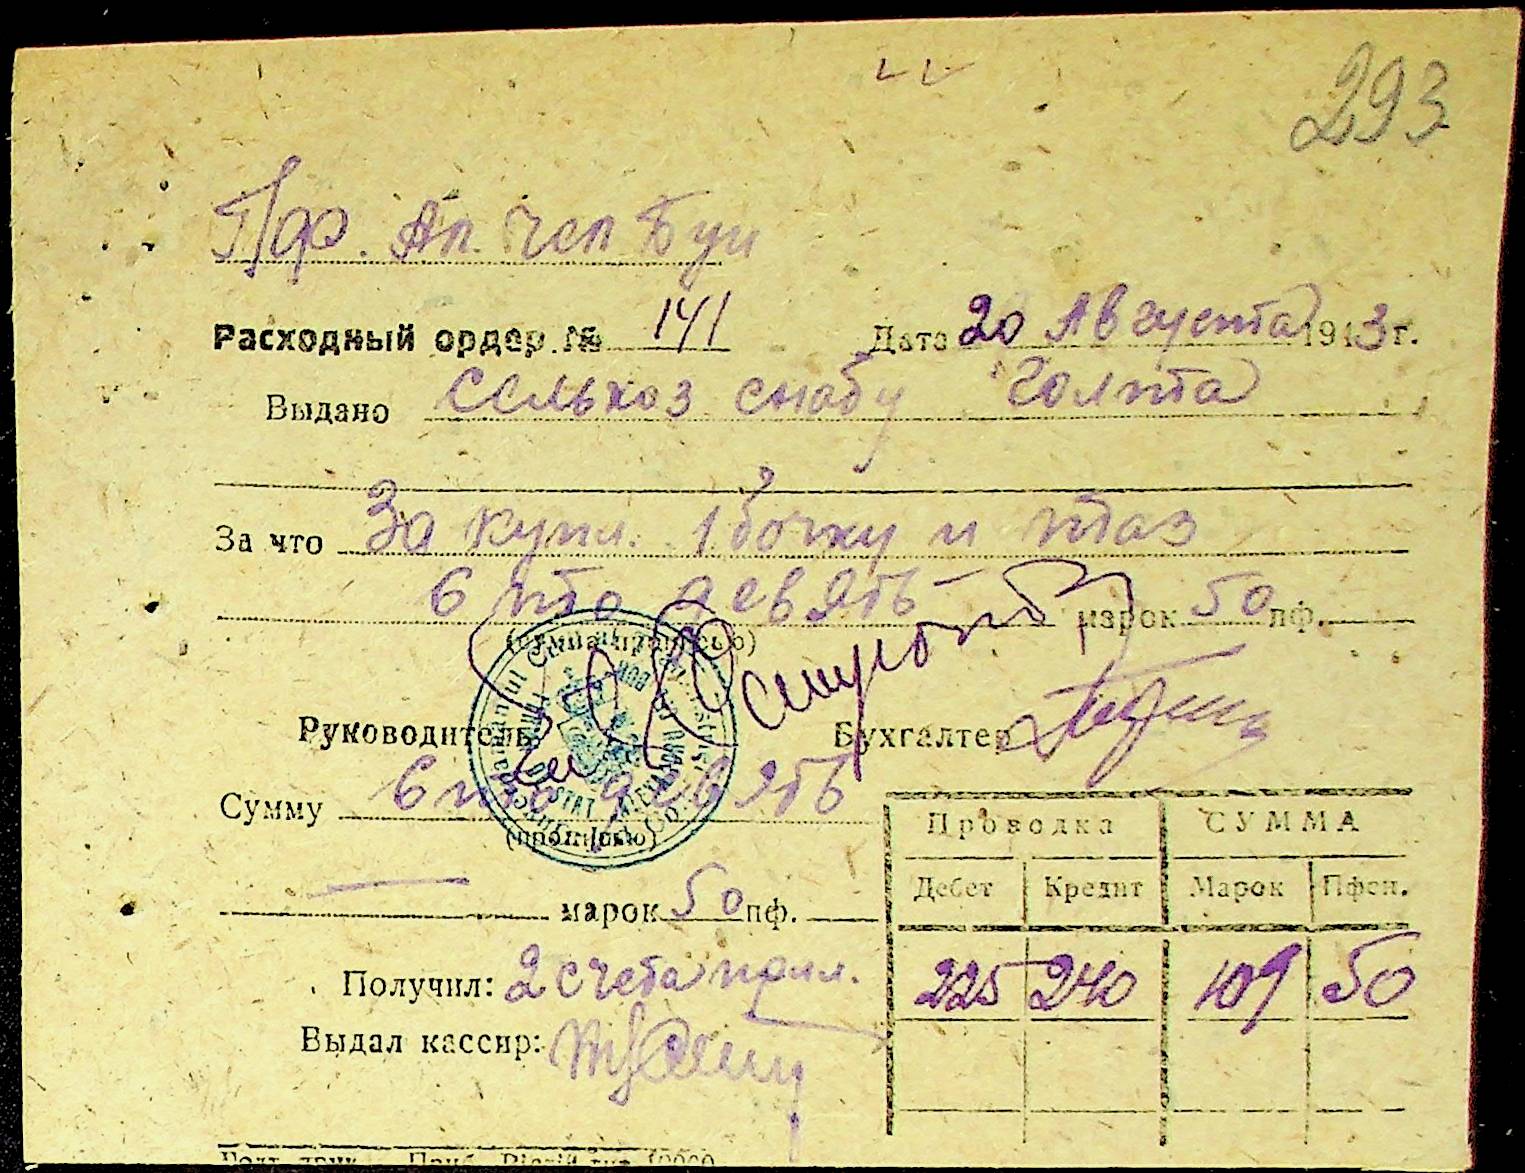 293
Пдф. Ап. Чел Буи
Расходный ордер № 141 Дата 20 Августа 1943 г.
Выдано Сельхоз снабу Голта
За что За купл. 1 бочку и таз
Сто девять марок 50 пф.
(сумма прописью)
Руководитель Бухгалтер
Сумму Сто девять
(прописью)
марок 50 пф.
Проводка СУММА
Дебет Кредит Марок Пфен.
225 240 109 50
Получил: 2 счета прил.
Выдал кассир: